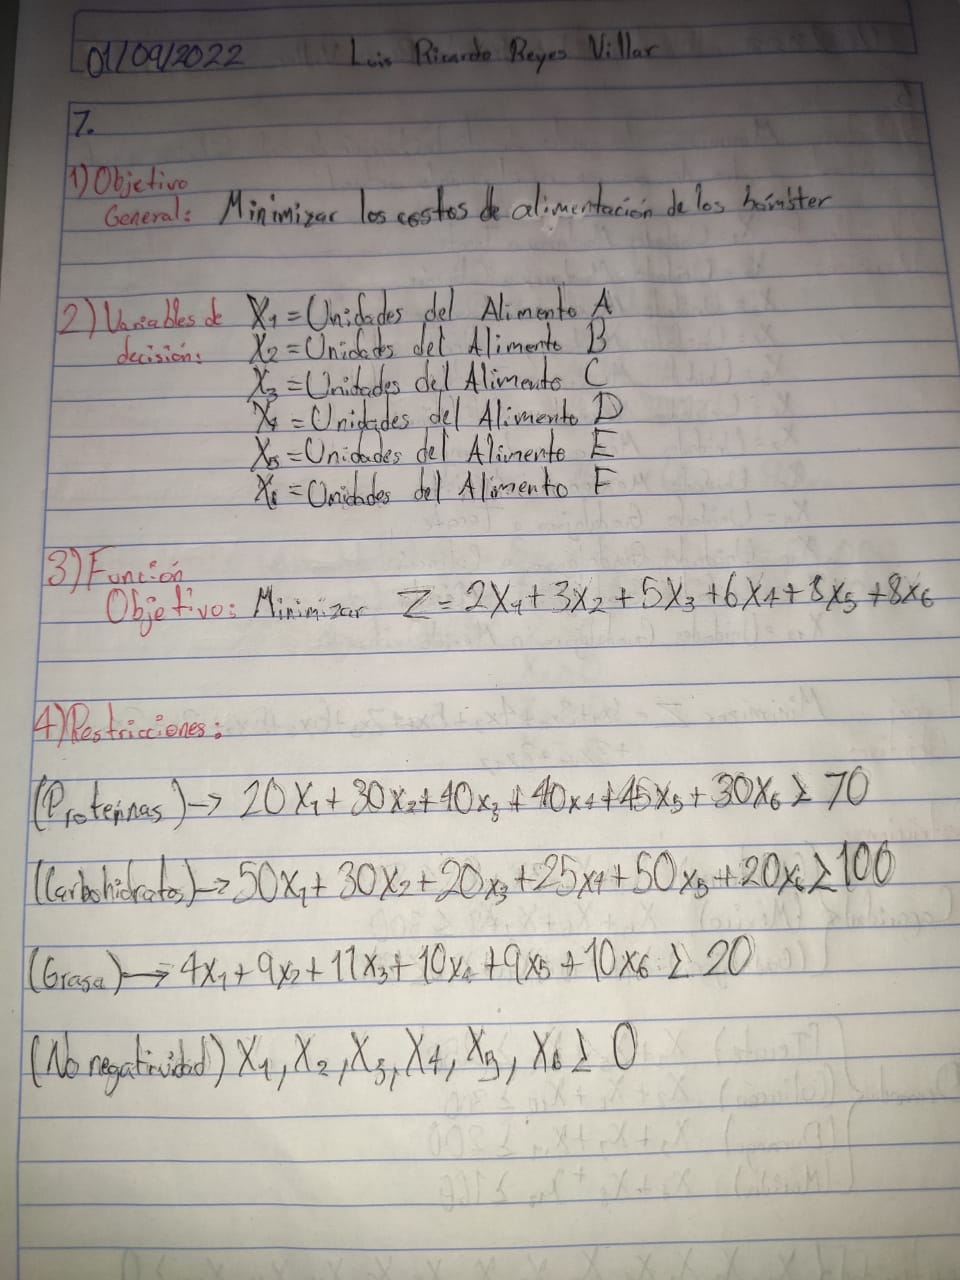 01/09/2022 Luis Ricardo Reyes Villar
7.
1) Objetivo
General: Minimizar los costos de alimentación de los hámster
2) Variables de decisión:
X₁ = Unidades del Alimento A
X₂ = Unidades del Alimento B
X₃ = Unidades del Alimento C
X₄ = Unidades del Alimento D
X₅ = Unidades del Alimento E
X₆ = Unidades del Alimento F
3) Función
Objetivo: Minimizar Z = 2X₁ + 3X₂ + 5X₃ + 6X₄ + 8X₅ + 8X₆
4) Restricciones:
(Proteínas) → 20X₁ + 30X₂ + 40X₃ + 40X₄ + 45X₅ + 30X₆ ≥ 70
(Carbohidratos) → 50X₁ + 30X₂ + 20X₃ + 25X₄ + 50X₅ + 20X₆ ≥ 100
(Grasa) → 4X₁ + 9X₂ + 11X₃ + 10X₄ + 9X₅ + 10X₆ ≥ 20
(No negatividad) X₁, X₂, X₃, X₄, X₅, X₆ ≥ 0